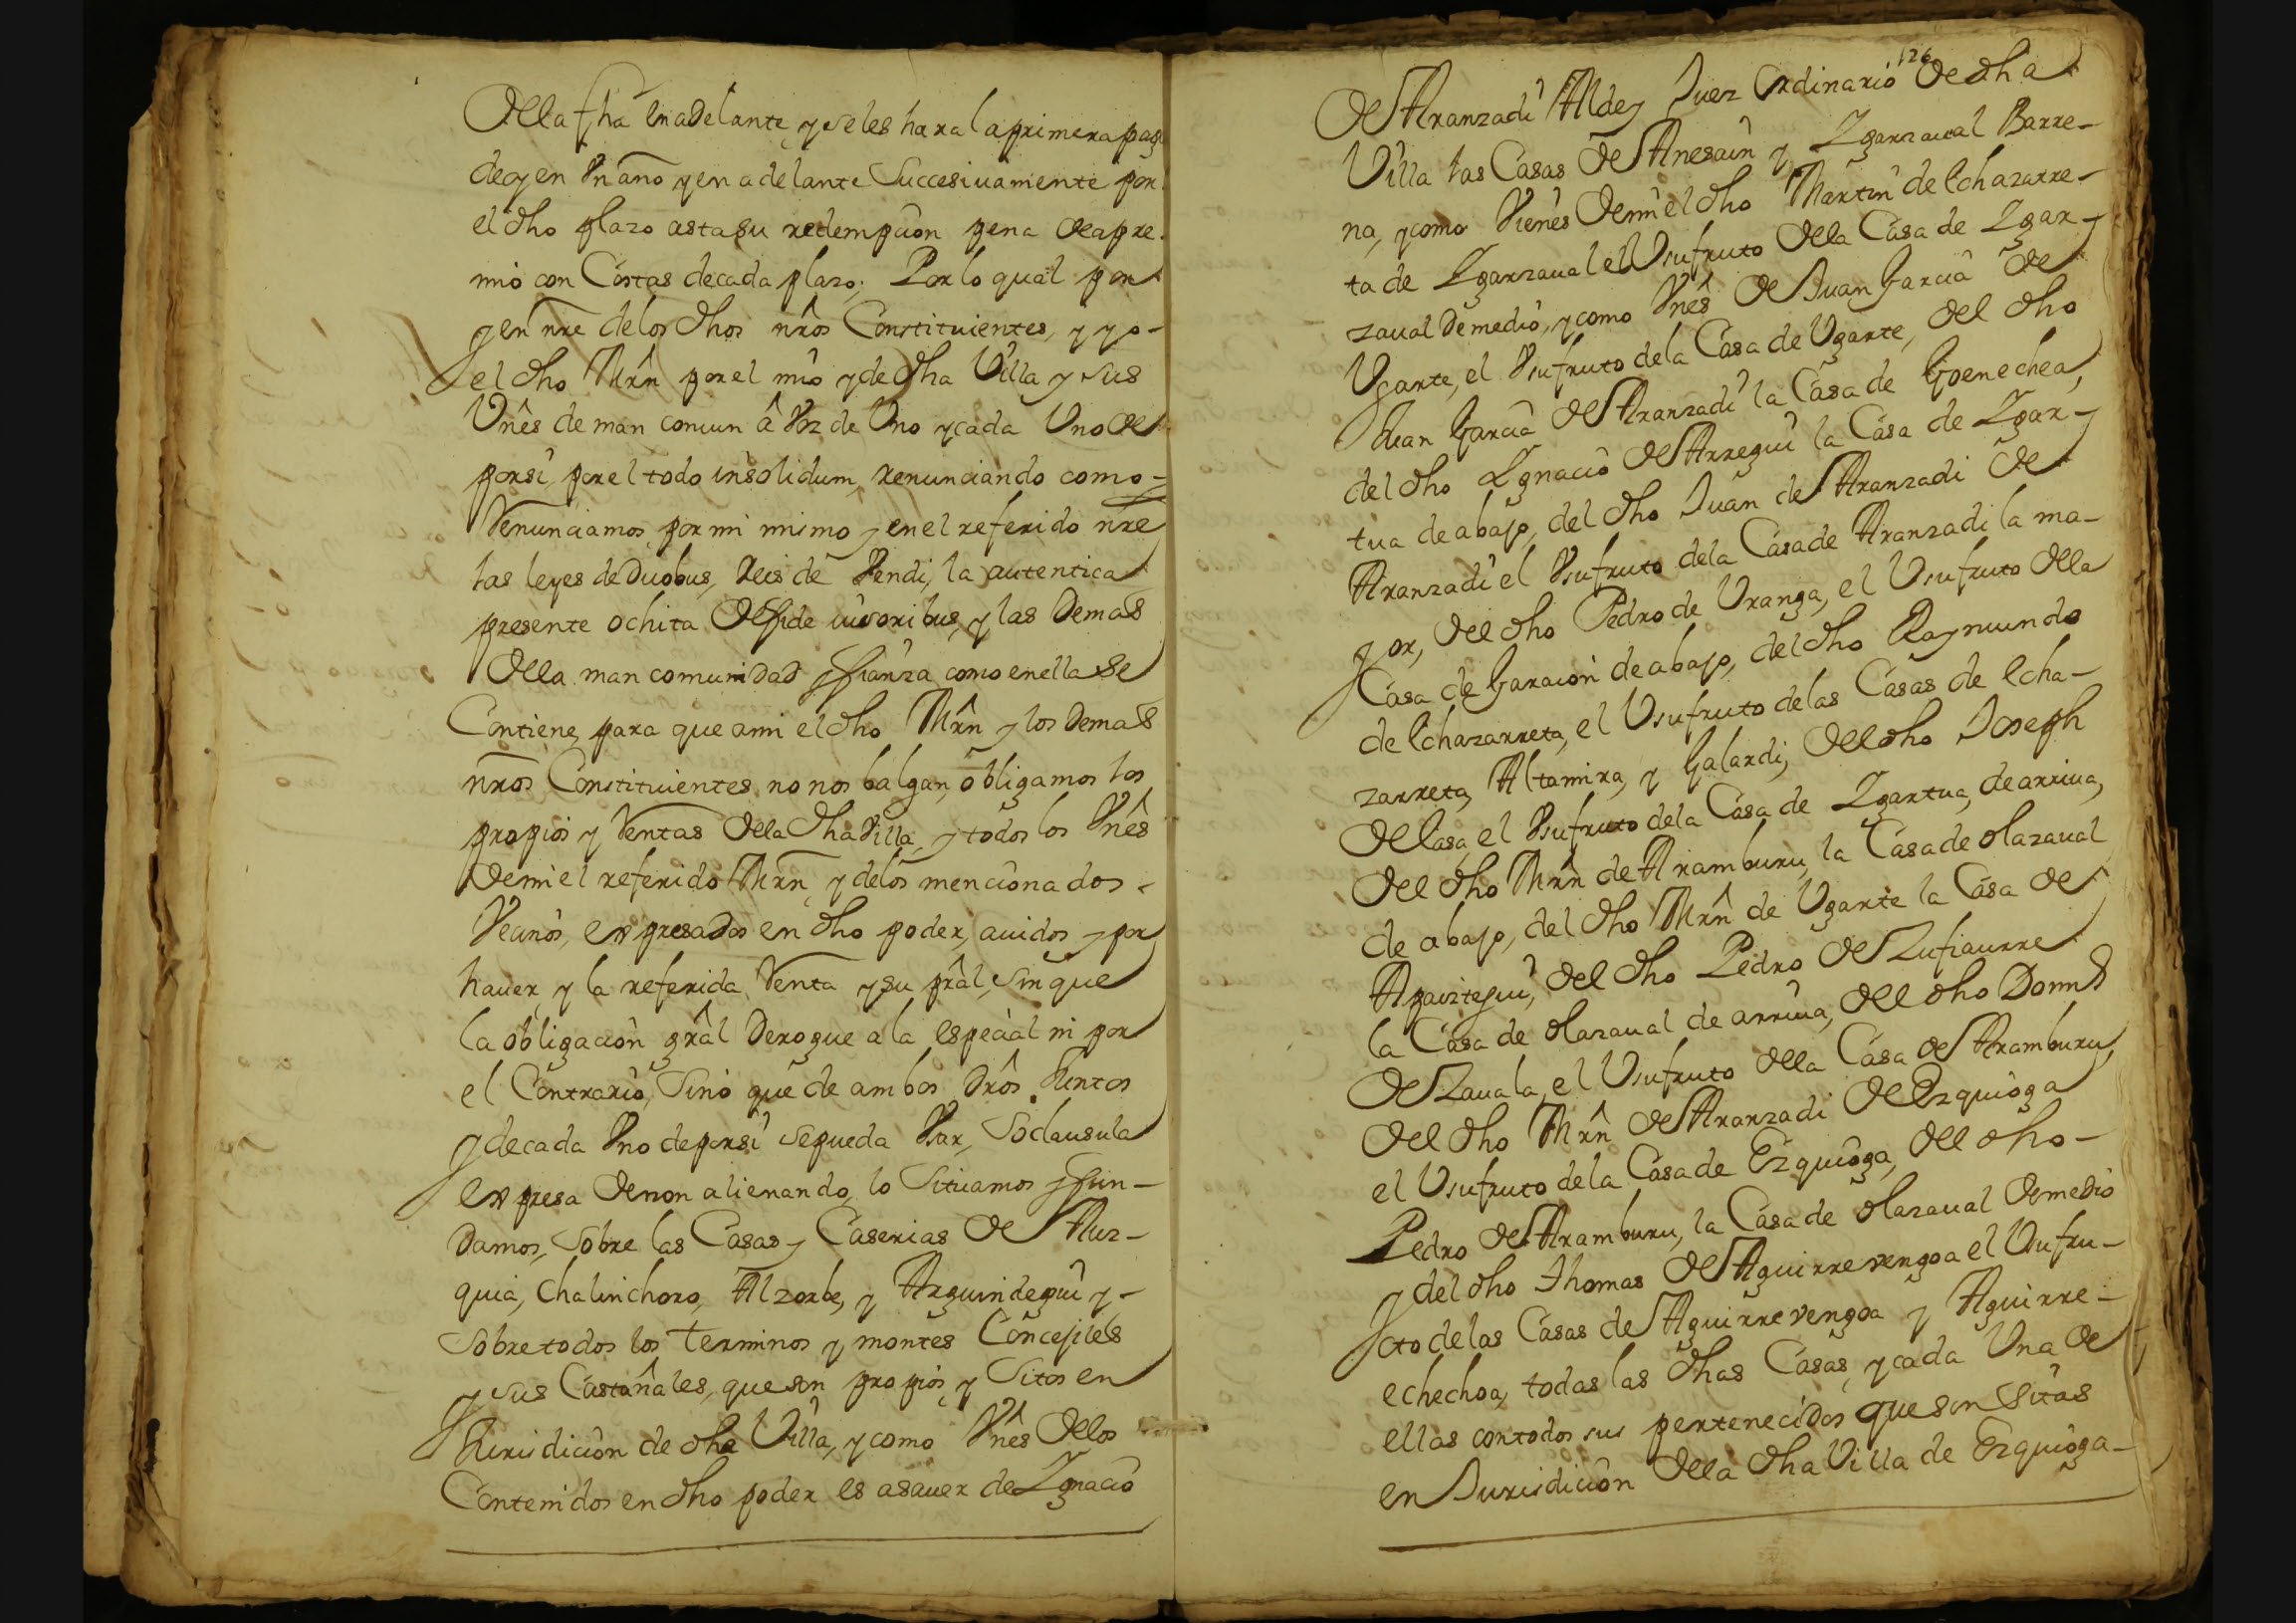 Della fha en adelante, y seles hara la primera pag
deoy en Vn año y en adelante Succesiuamente por
el dho plazo asta su redempcion pena de apre
mio con Costas de cada plazo; Por lo qual por
y en nre delos dhos nros Constituientes, y yo
el dho Mrn por el mio y de dha Villa y sus
Vnês de man comun â Voz de Vno y cada Vno de
porsi por el todo insolidum, renunciando como
Renunciamos por mi mismo y en el referido nre
las leyes de Duobus, Reis de Vendi, la autentica
presente ochita De fide iusoribus, y las Demas
Della man comunidad y fianza como en ella se
Contiene, para que a mi el dho Mrn y los Demas
nros Constituientes no nos balgan, obligamos los
propios y Rentas Dela dha Villa, y todos los Vnês
Demi el referido Mrn y delos mencionados
Vecinos, expresados en dho poder, auidos y por
hauer, y la referida Venta y su prâl, sin que
la obligacion grâl Derogue a la especial ni por
el Contrario, Sino que de ambos Drôs Juntos
y de cada Vno de porsi se pueda Vsar, So clausula
expresa de non alienando, lo Situamos y fun-
Damos, Sobre las Casas y Caserias de Auz-
quia, Chalinchoro, Alzorbe, y Arguindegui y
Sobre todos los terminos y montes Concejiles
y sus Castañales, que son propios y Sitos en
Jurisdicion de dha Villa, y como Vnês Delos
Contenidos en dho poder es a sauer de Ygnacio
126
De Aranzadi Alde y Juez Ordinario De dha
Villa las Casas de Anesain y Ygarzaual Barre-
na, y como Vienes Demi el dho Martin de Echazarre-
ta de Ygarzaual el Vsufruto Della Casa de Ygar-
zaual De medio, y como Vnês De Juan Garcia de
Vgarte, el Vsufruto dela Casa de Vgarte, Del dho
Juan Garcia De Aranzadi la Casa de Goenechea,
del dho Ygnacio De Arregui la Casa de Ygar-
tua de abajo, del dho Juan de Aranzadi de
Aranzadi el Vsufruto dela Casa de Aranzadi la ma-
yor, Del dho Pedro de Vranga, el Vsufruto Della
Casa de Garacion de abajo, del dho Raymundo
de Echazarreta, el Vsufruto delas Casas de Echa-
zarreta, Altamira, y Galardi, Del dho Joseph
De Lasa el Vsufruto dela Casa de Ygartua, de arriua,
Del dho Mrn de Aramburu, la Casa de olazaual
de abajo, del dho Mrn de Vgarte la Casa de
Apaiztegui, Del dho Pedro De Zufiaurre
la Casa de olazaual de arriua, Del dho Domo
De Zauala, el Vsufruto Della Casa de Aramburu,
Del dho Mrn De Aranzadi De Ezquioga
el Vsufruto dela Casa de Ezquioga, Del dho
Pedro de Aramburu, la Casa de olazaual de medio
y del dho Thomas De Aguirrevengoa el Vsufru-
cto delas Casas de Aguirrevengoa y Aguirre-
echechoa, todas las dhas Casas, y cada Vna de
ellas con todos sus pertenecidos que son sitas
en Jurisdicion Della dha Villa de Ezquioga